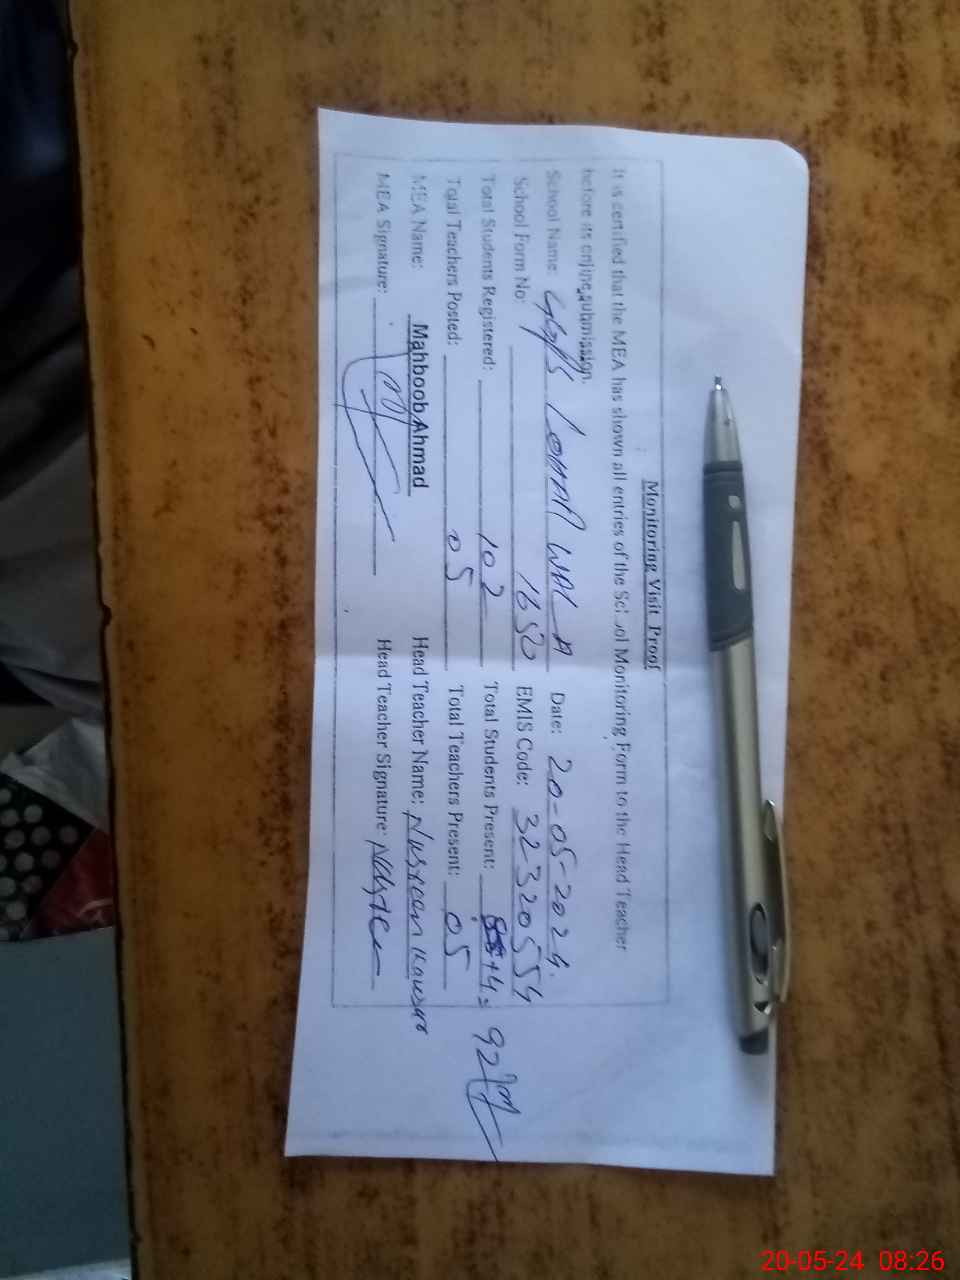 Monitoring Visit Proof
It is certified that the MEA has shown all entries of the School Monitoring Form to the Head Teacher
before its online submission.
School Name: GGPS LOHAR WALA Date: 20-05-2024.
School Form No: 1650 EMIS Code: 32320554
Total Students Registered: 102 Total Students Present: +4= 92
Total Teachers Posted: 05 Total Teachers Present: 05
MEA Name: Mahboob Ahmad Head Teacher Name: Nusreen Kausar
MEA Signature: Head Teacher Signature:
20-05-24 08:26